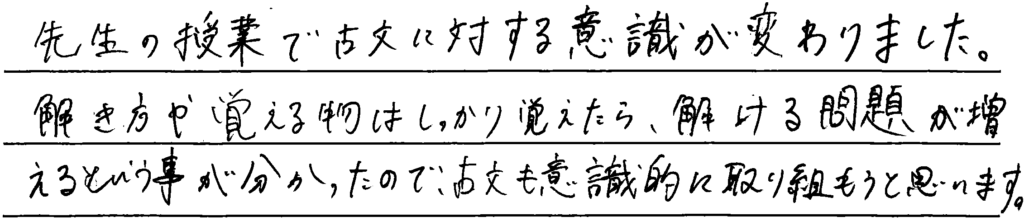 先生の授業で古文に対する意識が変わりました。
解き方や覚える物はしっかり覚えたら、解ける問題が増
えるという事が分かったので、古文も意識的に取り組もうと思います。